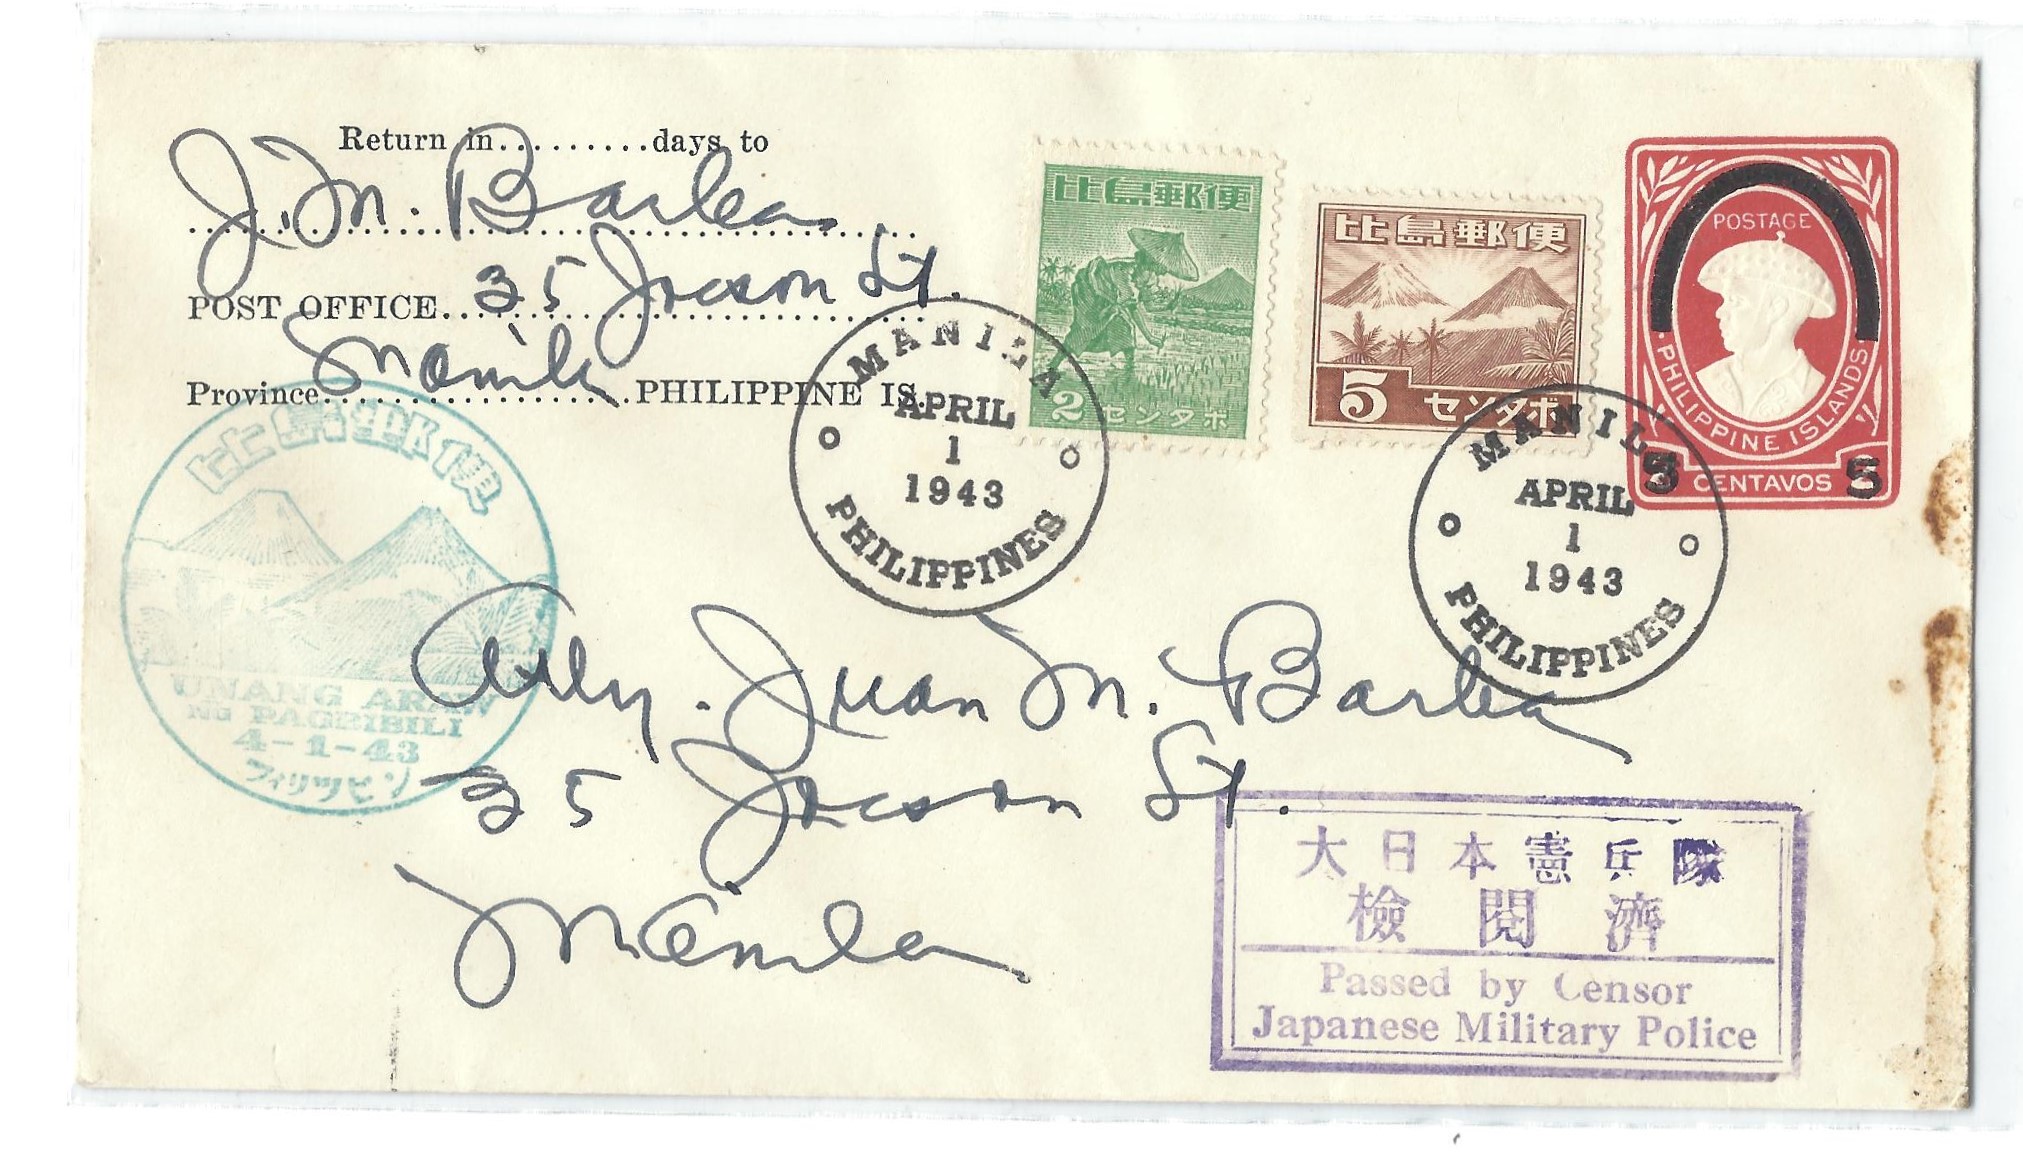 Return in..........days to
J. M. Barlea
POST OFFICE 35 Jocson St.
Province Manila PHILIPPINE IS.
比島郵便
2 センタボ
比島郵便
5 センタボ
POSTAGE
PHILIPPINE ISLANDS
5 CENTAVOS 5
MANILA
APRIL
1
1943
PHILIPPINES
MANILA
APRIL
1
1943
PHILIPPINES
比島郵便
UNANG ARAW
NG PAGBIBILI
4-1-43
フィリッピン
Juan M. Barlea
35 Jocson St.
Manila
大日本憲兵隊
檢閲濟
Passed by Censor
Japanese Military Police